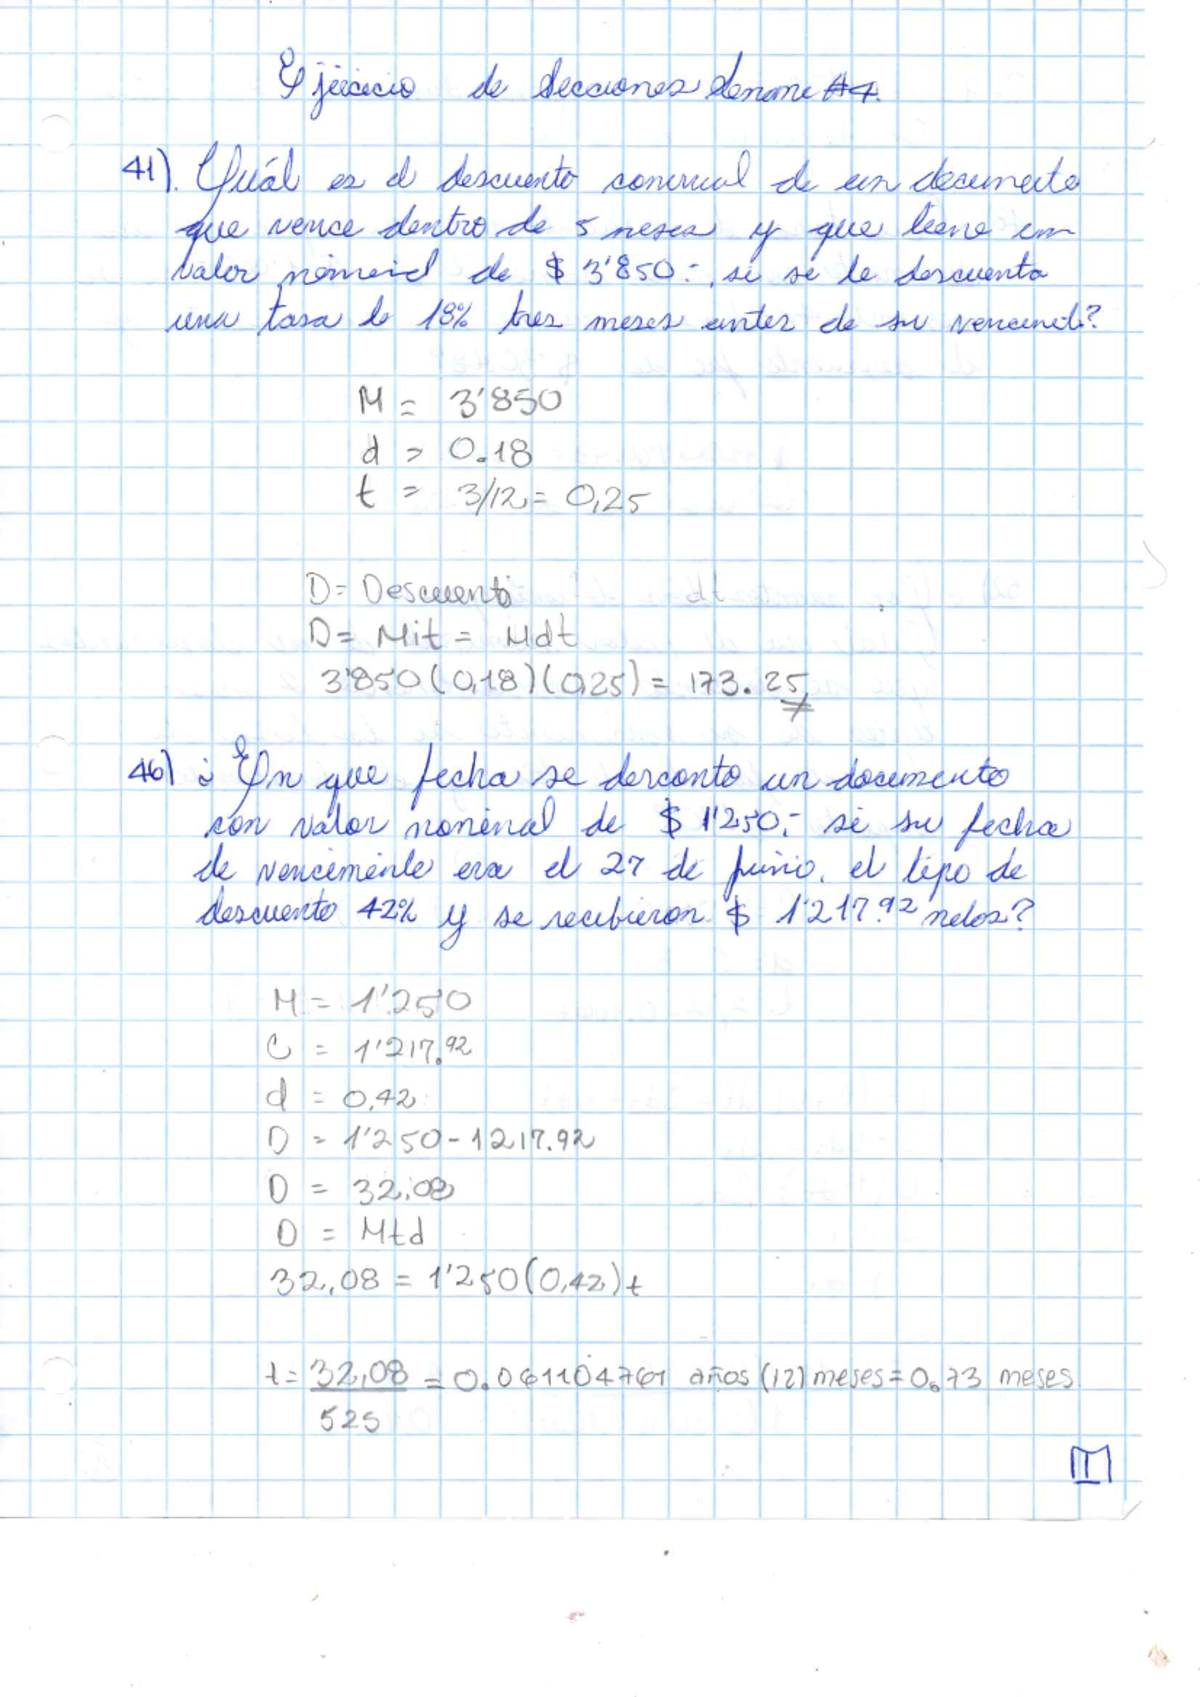 Ejercicio de Secciones Semana #4.
41). Cuál es el descuento comercial de un documento
que vence dentro de 5 meses y que tiene un
valor nominal de $ 3'850.-, si se le descuenta
una tasa de 18% tres meses antes de su vencimit.?
M = 3'850
d = 0.18
t = 3/12 = 0,25
D = Descuento
D = Mit = Mdt
3'850(0,18)(0,25) = 173.25
46) ¿En que fecha se desconto un documento
con valor nominal de $ 1'250,- si su fecha
de vencimiento era el 27 de junio, el tipo de
descuento 42% y se recibieron $ 1'217.92 netos?
M = 1'250
C = 1'217.92
d = 0,42
D = 1'250 - 1217.92
D = 32.08
D = Mtd
32,08 = 1'250(0,42)t
t = 32,08 = 0.061104761 años (12) meses = 0.73 meses
525
1